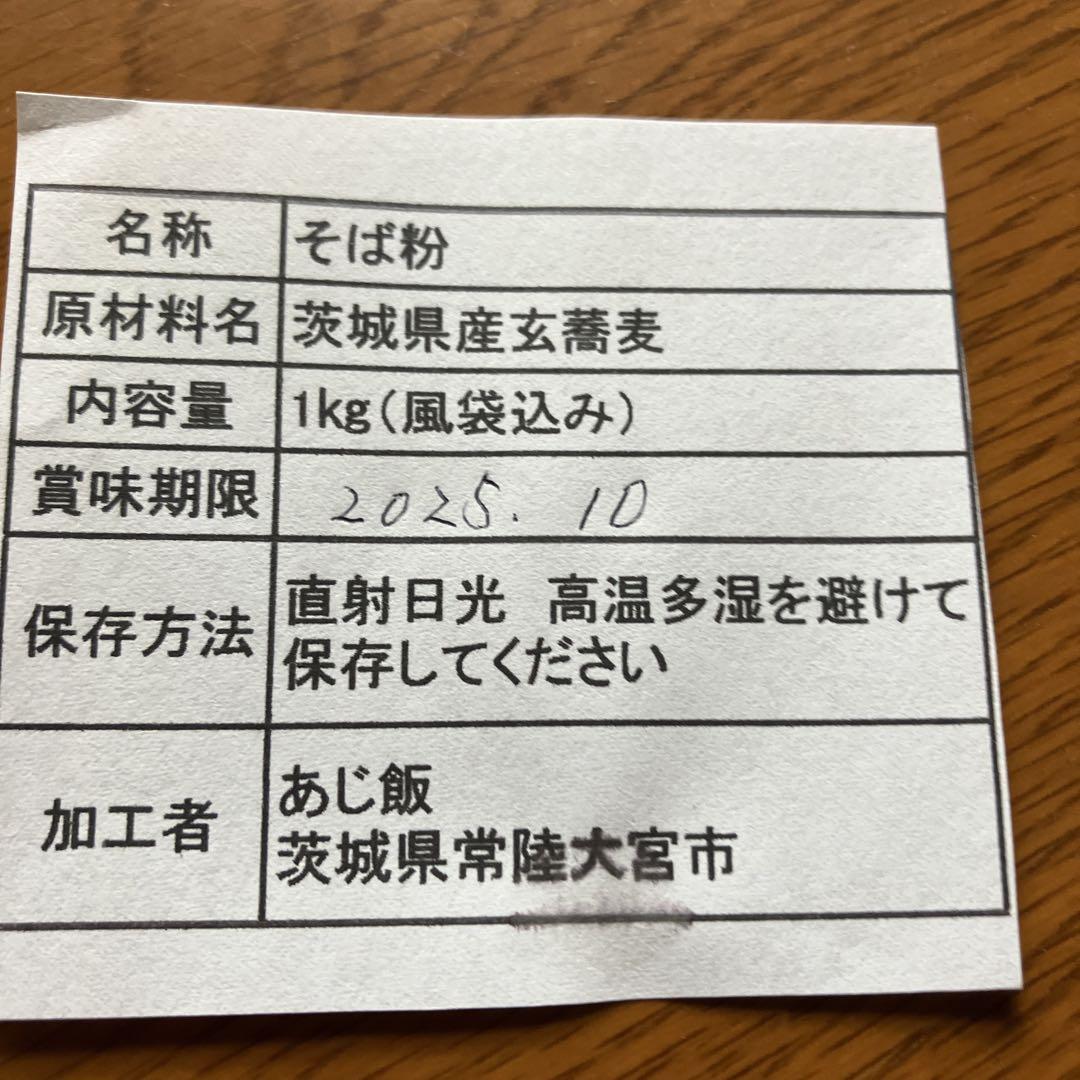 名称 そば粉
原材料名 茨城県産玄蕎麦
内容量 1kg(風袋込み)
賞味期限 2025. 10
保存方法 直射日光 高温多湿を避けて
保存してください
加工者 あじ飯
茨城県常陸大宮市